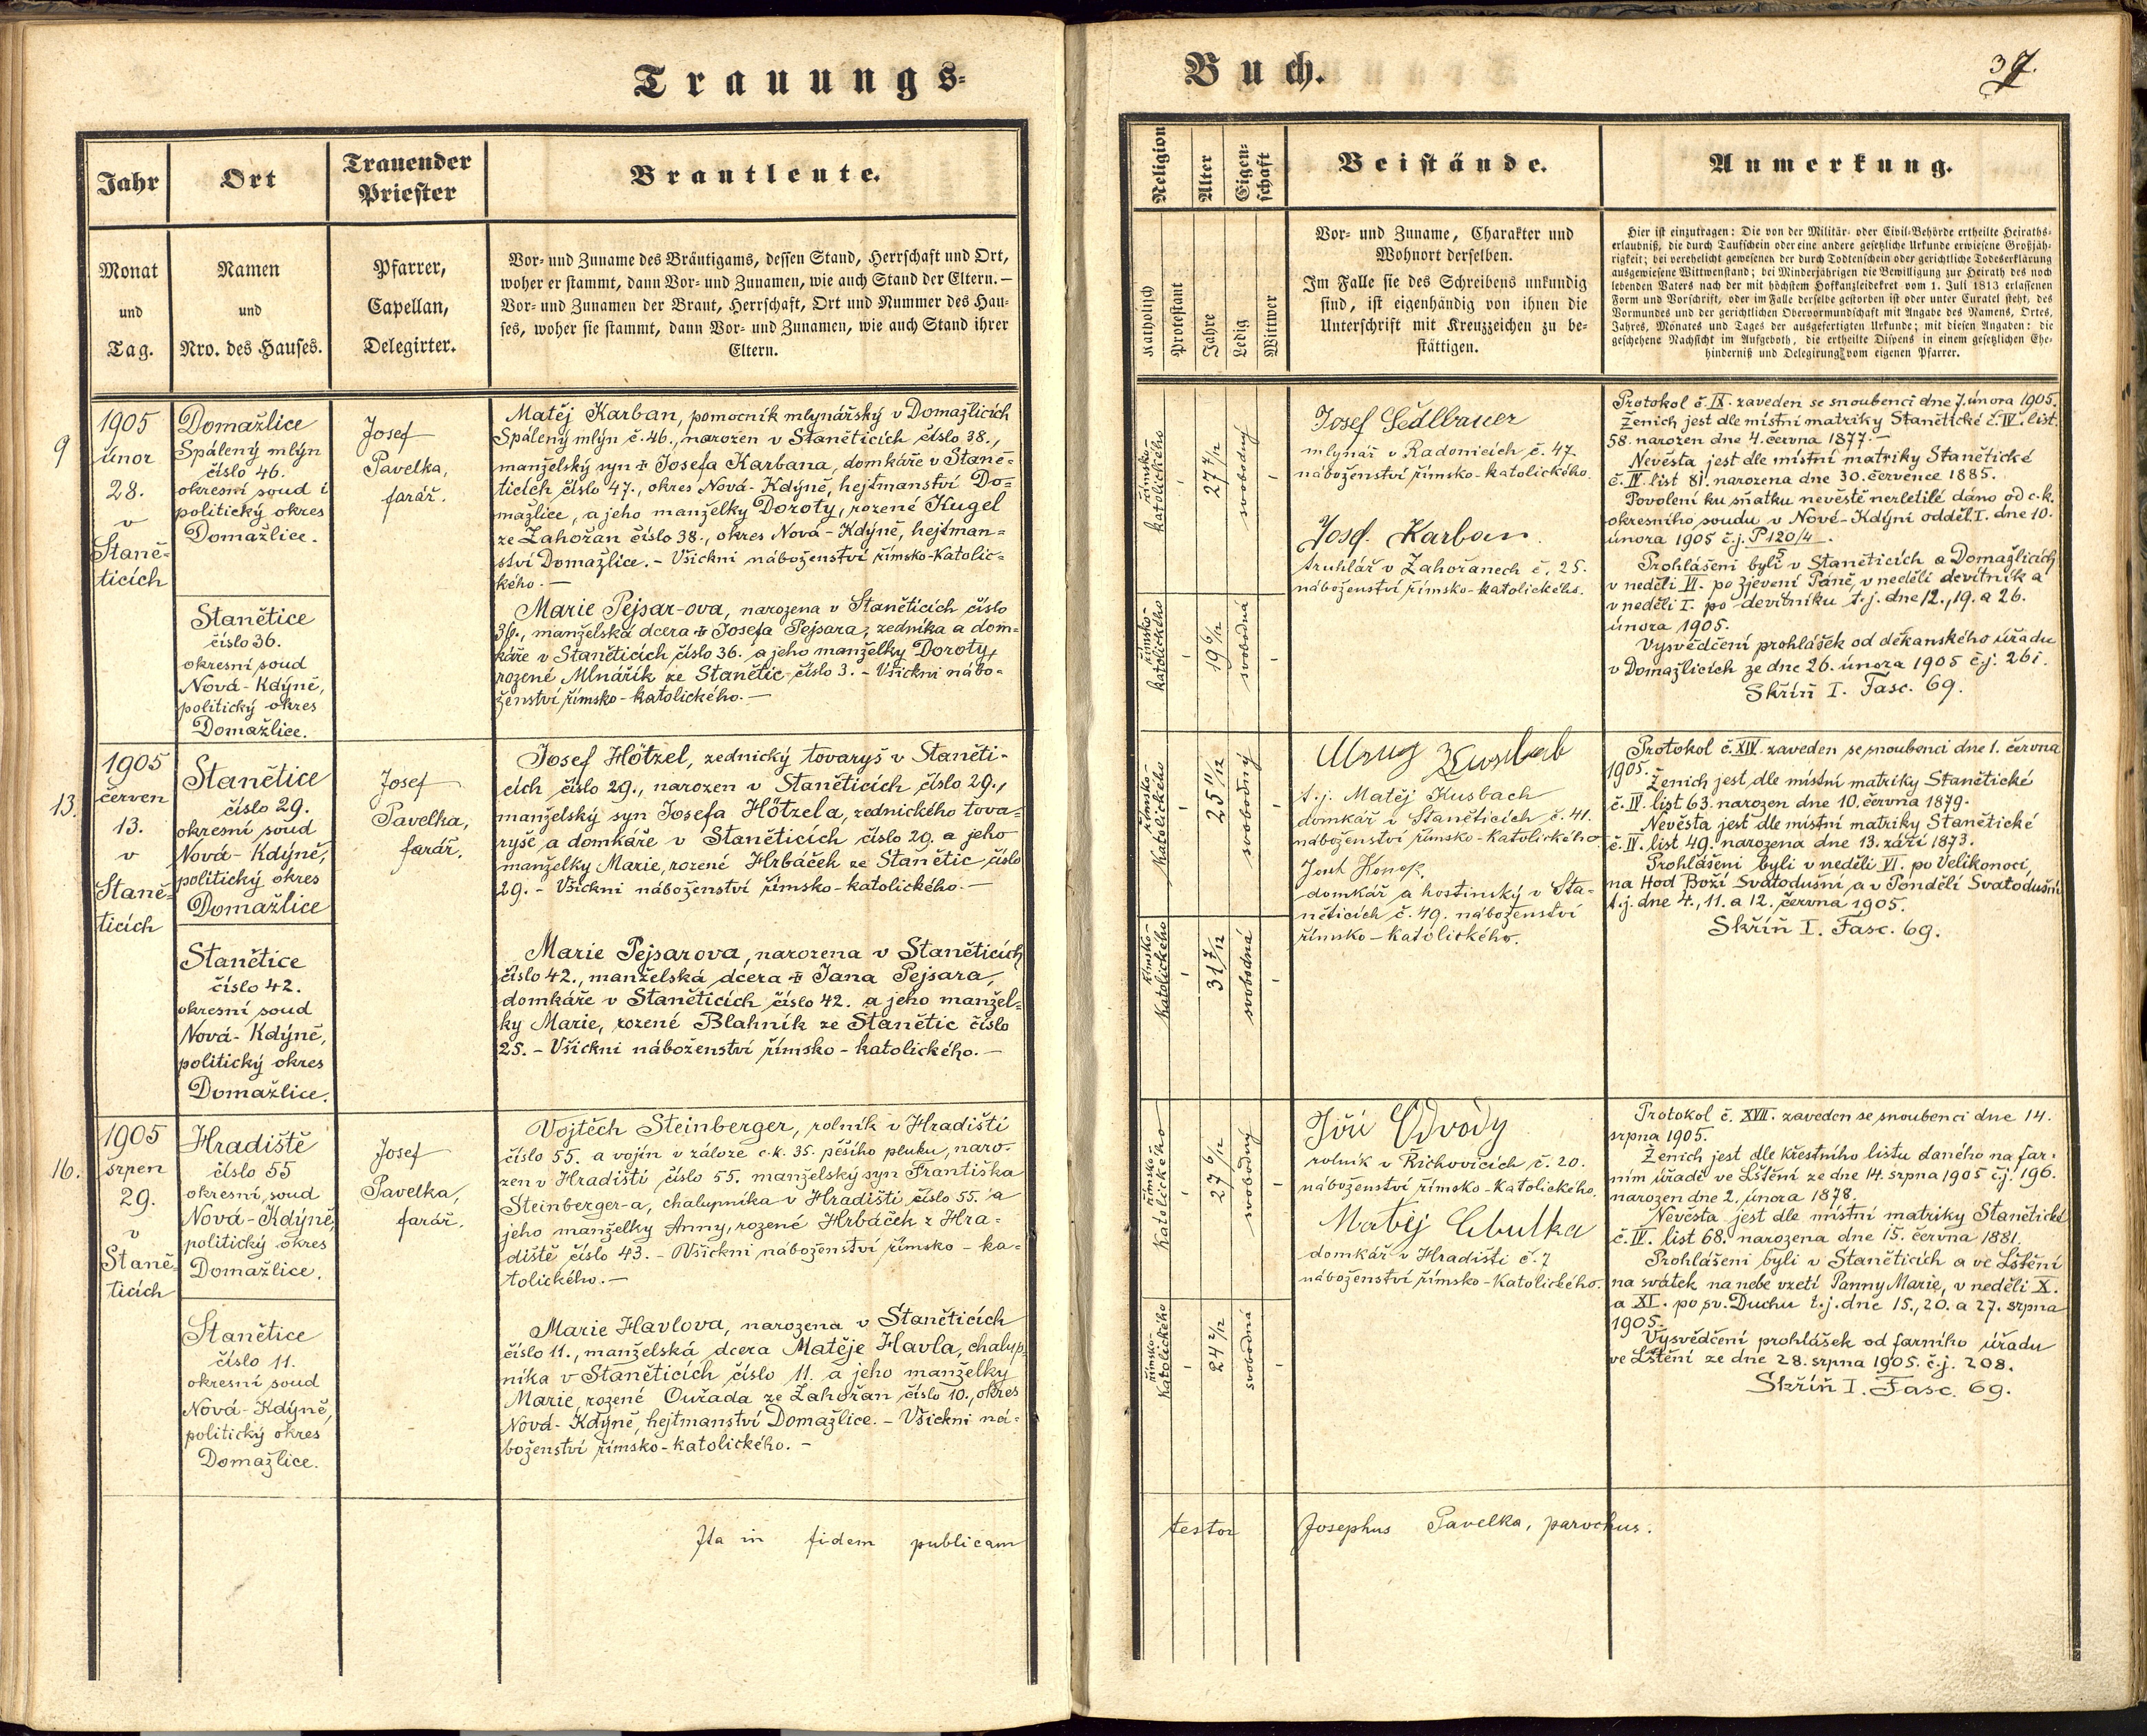 Trauungs-
Jahr
Ort
Trauender
Priester
Brautleute.
Monat
und
Tag.
Namen
und
Nro. des Hauses.
Pfarrer,
Capellan,
Delegirter.
Vor- und Zuname des Bräutigams, dessen Stand, Herrschaft und Ort,
woher er stammt, dann Vor- und Zunamen, wie auch Stand der Eltern. —
Vor- und Zunamen der Braut, Herrschaft, Ort und Nummer des Hau-
ses, woher sie stammt, dann Vor- und Zunamen, wie auch Stand ihrer
Eltern.
9
1905
únor
28.
v
Staně-
ticích
Domažlice
Spálený mlýn
číslo 46.
okresní soud i
politický okres
Domažlice.
Stanětice
číslo 36.
okresní soud
Nová-Kdýně,
politický okres
Domažlice.
Josef
Pavelka,
farář.
Matěj Karban, pomocník mlynářský v Domažlicích
Spálený mlýn č. 46., narozen v Staněticích číslo 38.,
manželský syn ✝ Josefa Karbana, domkáře v Staně-
ticích číslo 47., okres Nová-Kdýně, hejtmanství Do-
mažlice, a jeho manželky Doroty, rozené Kugel
ze Zahořan číslo 38., okres Nová-Kdýně, hejtman-
ství Domažlice. - Všickni náboženství římsko-katolic-
kého. —
Marie Pejsar-ova, narozena v Staněticích číslo
36., manželská dcera ✝ Josefa Pejsara, zedníka a dom-
káře v Staněticích číslo 36. a jeho manželky Doroty,
rozené Mlnářík ze Stanětic číslo 3. - Všickni nábo-
ženství římsko-katolického. —
13.
1905
červen
13.
v
Staně-
ticích
Stanětice
číslo 29.
okresní soud
Nová-Kdýně,
politický okres
Domažlice
Stanětice
číslo 42.
okresní soud
Nová-Kdýně,
politický okres
Domažlice.
Josef
Pavelka,
farář.
Josef Hötzel, zednický tovaryš v Staněti-
cích číslo 29., narozen v Staněticích číslo 29.,
manželský syn Josefa Hötzela, zednického tova-
ryše a domkáře v Staněticích číslo 29. a jeho
manželky Marie, rozené Hrbáček ze Stanětic číslo
29. - Všickni náboženství římsko-katolického. —
Marie Pejsarova, narozena v Staněticích
číslo 42., manželská dcera ✝ Jana Pejsara,
domkáře v Staněticích číslo 42. a jeho manžel-
ky Marie, rozené Blahník ze Stanětic číslo
25. - Všickni náboženství římsko-katolického. —
16.
1905
srpen
29.
v
Staně-
ticích
Hradiště
číslo 55
okresní soud
Nová-Kdýně,
politický okres
Domažlice.
Stanětice
číslo 11.
okresní soud
Nová-Kdýně,
politický okres
Domažlice.
Josef
Pavelka,
farář.
Vojtěch Steinberger, rolník v Hradišti
číslo 55. a vojín v záloze c.k. 35. pěšího pluku, naro-
zen v Hradišti číslo 55. manželský syn Františka
Steinberger-a, chalupníka v Hradišti číslo 55. a
jeho manželky Anny, rozené Hrbáček z Hra-
diště číslo 43. - Všickni náboženství římsko-ka-
tolického. —
Marie Havlova, narozena v Staněticích
číslo 11., manželská dcera Matěje Havla, chalup-
níka v Staněticích číslo 11. a jeho manželky
Marie, rozené Ouřada ze Zahořan číslo 10., okres
Nová-Kdýně, hejtmanství Domažlice. - Všickni ná-
boženství římsko-katolického. -
Ita in fidem publicam
Buch.
37.
Religion
Alter
Eigen-
schaft
Beistände.
Anmerkung.
Katholisch
Protestant
Jahre
Ledig
Wittwer
Vor- und Zuname, Charakter und
Wohnort derselben.
Im Falle sie des Schreibens unkundig
sind, ist eigenhändig von ihnen die
Unterschrift mit Kreuzzeichen zu be-
stättigen.
Hier ist einzutragen: Die von der Militär- oder Civil-Behörde ertheilte Heiraths-
erlaubniß, die durch Taufschein oder eine andere gesetzliche Urkunde erwiesene Großjäh-
rigkeit; bei verehelicht gewesenen der durch Todtenschein oder gerichtliche Todeserklärung
ausgewiesene Wittwenstand; bei Minderjährigen die Bewilligung zur Heirath des noch
lebenden Vaters nach der mit höchstem Hofkanzleidekret vom 1. Juli 1813 erlassenen
Form und Vorschrift, oder im Falle derselbe gestorben ist oder unter Curatel steht, des
Vormundes und der gerichtlichen Obervormundschaft mit Angabe des Namens, Ortes,
Jahres, Monates und Tages der ausgefertigten Urkunde; mit diesen Angaben: die
geschehene Nachsicht im Aufgeboth, die ertheilte Dispens in einem gesetzlichen Ehe-
hinderniß und Delegirung vom eigenen Pfarrer.
římsko-
katolického
27 7/12
svobodný
římsko-
katolického
19 6/12
svobodná
Josef Sedlbauer
mlynář v Radonicích č. 47.
náboženství římsko-katolického.
Josef Karban.
truhlář v Zahořanech č. 25.
náboženství římsko-katolického.
Protokol č. IX. zaveden se snoubenci dne 7. února 1905.
Ženich jest dle místní matriky Stanětické č. IV. list.
58. narozen dne 4. června 1877. -
Nevěsta jest dle místní matriky Stanětické
č. IV list 81. narozena dne 30. července 1885.
Povolení ku sňatku nevěstě nezletilé dáno od c.k.
okresního soudu v Nové-Kdýni odděl. I. dne 10.
února 1905 č.j. P 120/4.
5
Prohlášeni byli v Staněticích a Domažlicích
v neděli VI. po Zjevení Páně, v neděli devítník a
v neděli I. po devítníku t.j. dne 12., 19. a 26.
února 1905.
Vysvědčení prohlášek od děkanského úřadu
v Domažlicích ze dne 26. února 1905 č.j. 261.
Skříň I. Fasc. 69.
římsko-
katolického
25 11/12
svobodný
římsko-
katolického
31 7/12
svobodná
t.j. Matěj Kusbach
domkář v Staněticích č. 41.
náboženství římsko-katolického.
domkář a hostinský v Sta-
něticích č. 49. náboženství
římsko-katolického.
Protokol č. XIV. zaveden se snoubenci dne 1. června
1905.
Ženich jest dle místní matriky Stanětické
č. IV list 63. narozen dne 10. června 1879.
Nevěsta jest dle místní matriky Stanětické
č. IV. list 49. narozena dne 13. září 1873.
Prohlášeni byli v neděli VI. po Velikonoci,
na Hod Boží Svatodušní, a v Pondělí Svatodušní
t.j. dne 4., 11. a 12. června 1905.
Skříň I. Fasc. 69.
římsko-
katolického
27 6/12
svobodný
římsko-
katolického
24 2/12
svobodná
Jiří Odvody
rolník v Říchovicích č. 20.
náboženství římsko-katolického.
Matěj Cibulka
domkář v Hradišti č. 7
náboženství římsko-katolického.
Protokol č. XVII. zaveden se snoubenci dne 14.
srpna 1905.
Ženich jest dle křestního listu daného na far-
ním úřadě ve Lštění ze dne 14. srpna 1905 č.j. 196.
narozen dne 2. února 1878.
Nevěsta jest dle místní matriky Stanětické
č. IV. list 68. narozena dne 15. června 1881.
Prohlášeni byli v Staněticích a ve Lštění
na svátek na nebe vzetí Panny Marie, v neděli X.
a XI. po sv. Duchu t.j. dne 15., 20. a 27. srpna
1905.
Vysvědčení prohlášek od farního úřadu
ve Lštění ze dne 28. srpna 1905. č.j. 208.
Skříň I. Fasc. 69.
testor Josephus Pavelka, parochus.